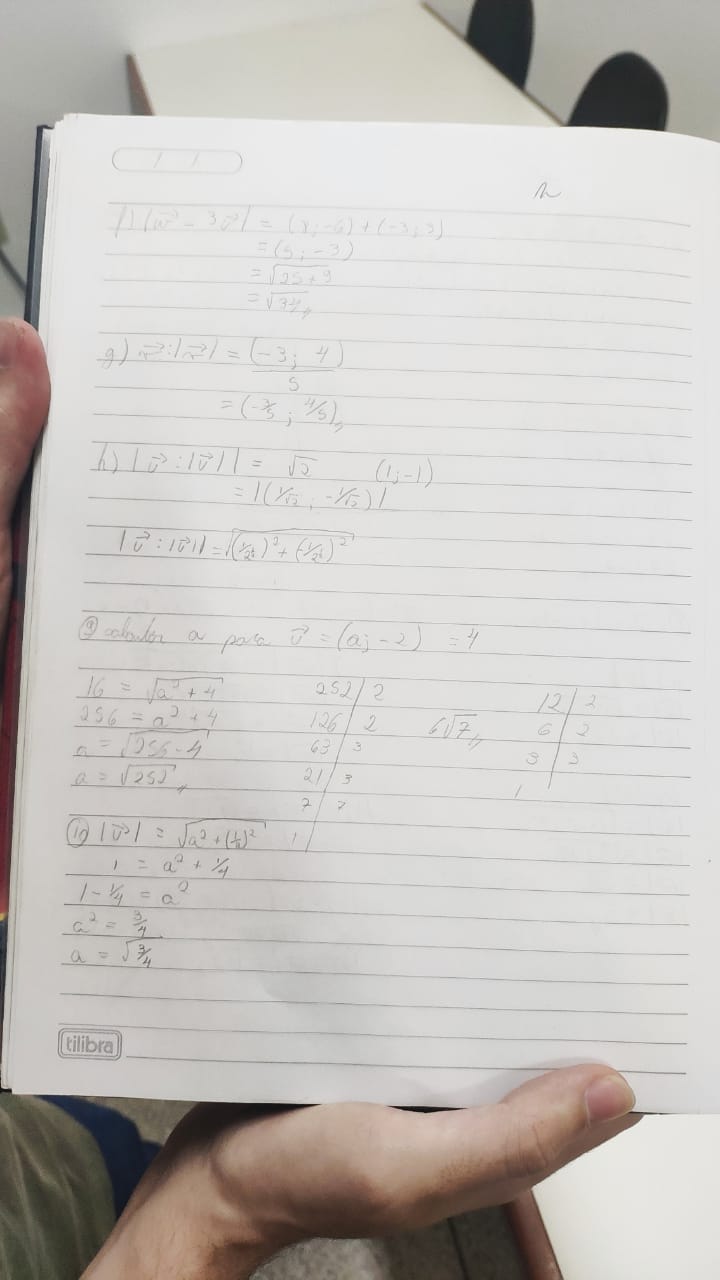 f) |w⃗ - 3u⃗| = (8; -6) + (-3; 3)
= (5; -3)
= √25+9
= √34,,
g) w⃗ : |w⃗| = (-3; 4)
5
= (-3/5 ; 4/5),,
h) | v⃗ : |v⃗| | = √2 (1; -1)
= |(1/√2 ; -1/√2)|
| v⃗ : |v⃗| | = √(1/2½)² + (-1/2½)²
⑨ calcular a para v⃗ = (a; -2) = 4
16 = √a² + 4
256 = a² + 4
a = √256 - 4
a = √252,,
252 | 2
126 | 2
63 | 3
21 | 3
7 | 7
1
6√7,,
12 | 2
6 | 2
3 | 3
1
⑩ |v⃗| = √a² + (1/2)²
1 = a² + 1/4
1 - 1/4 = a²
a² = 3/4
a = √3/4
tilibra